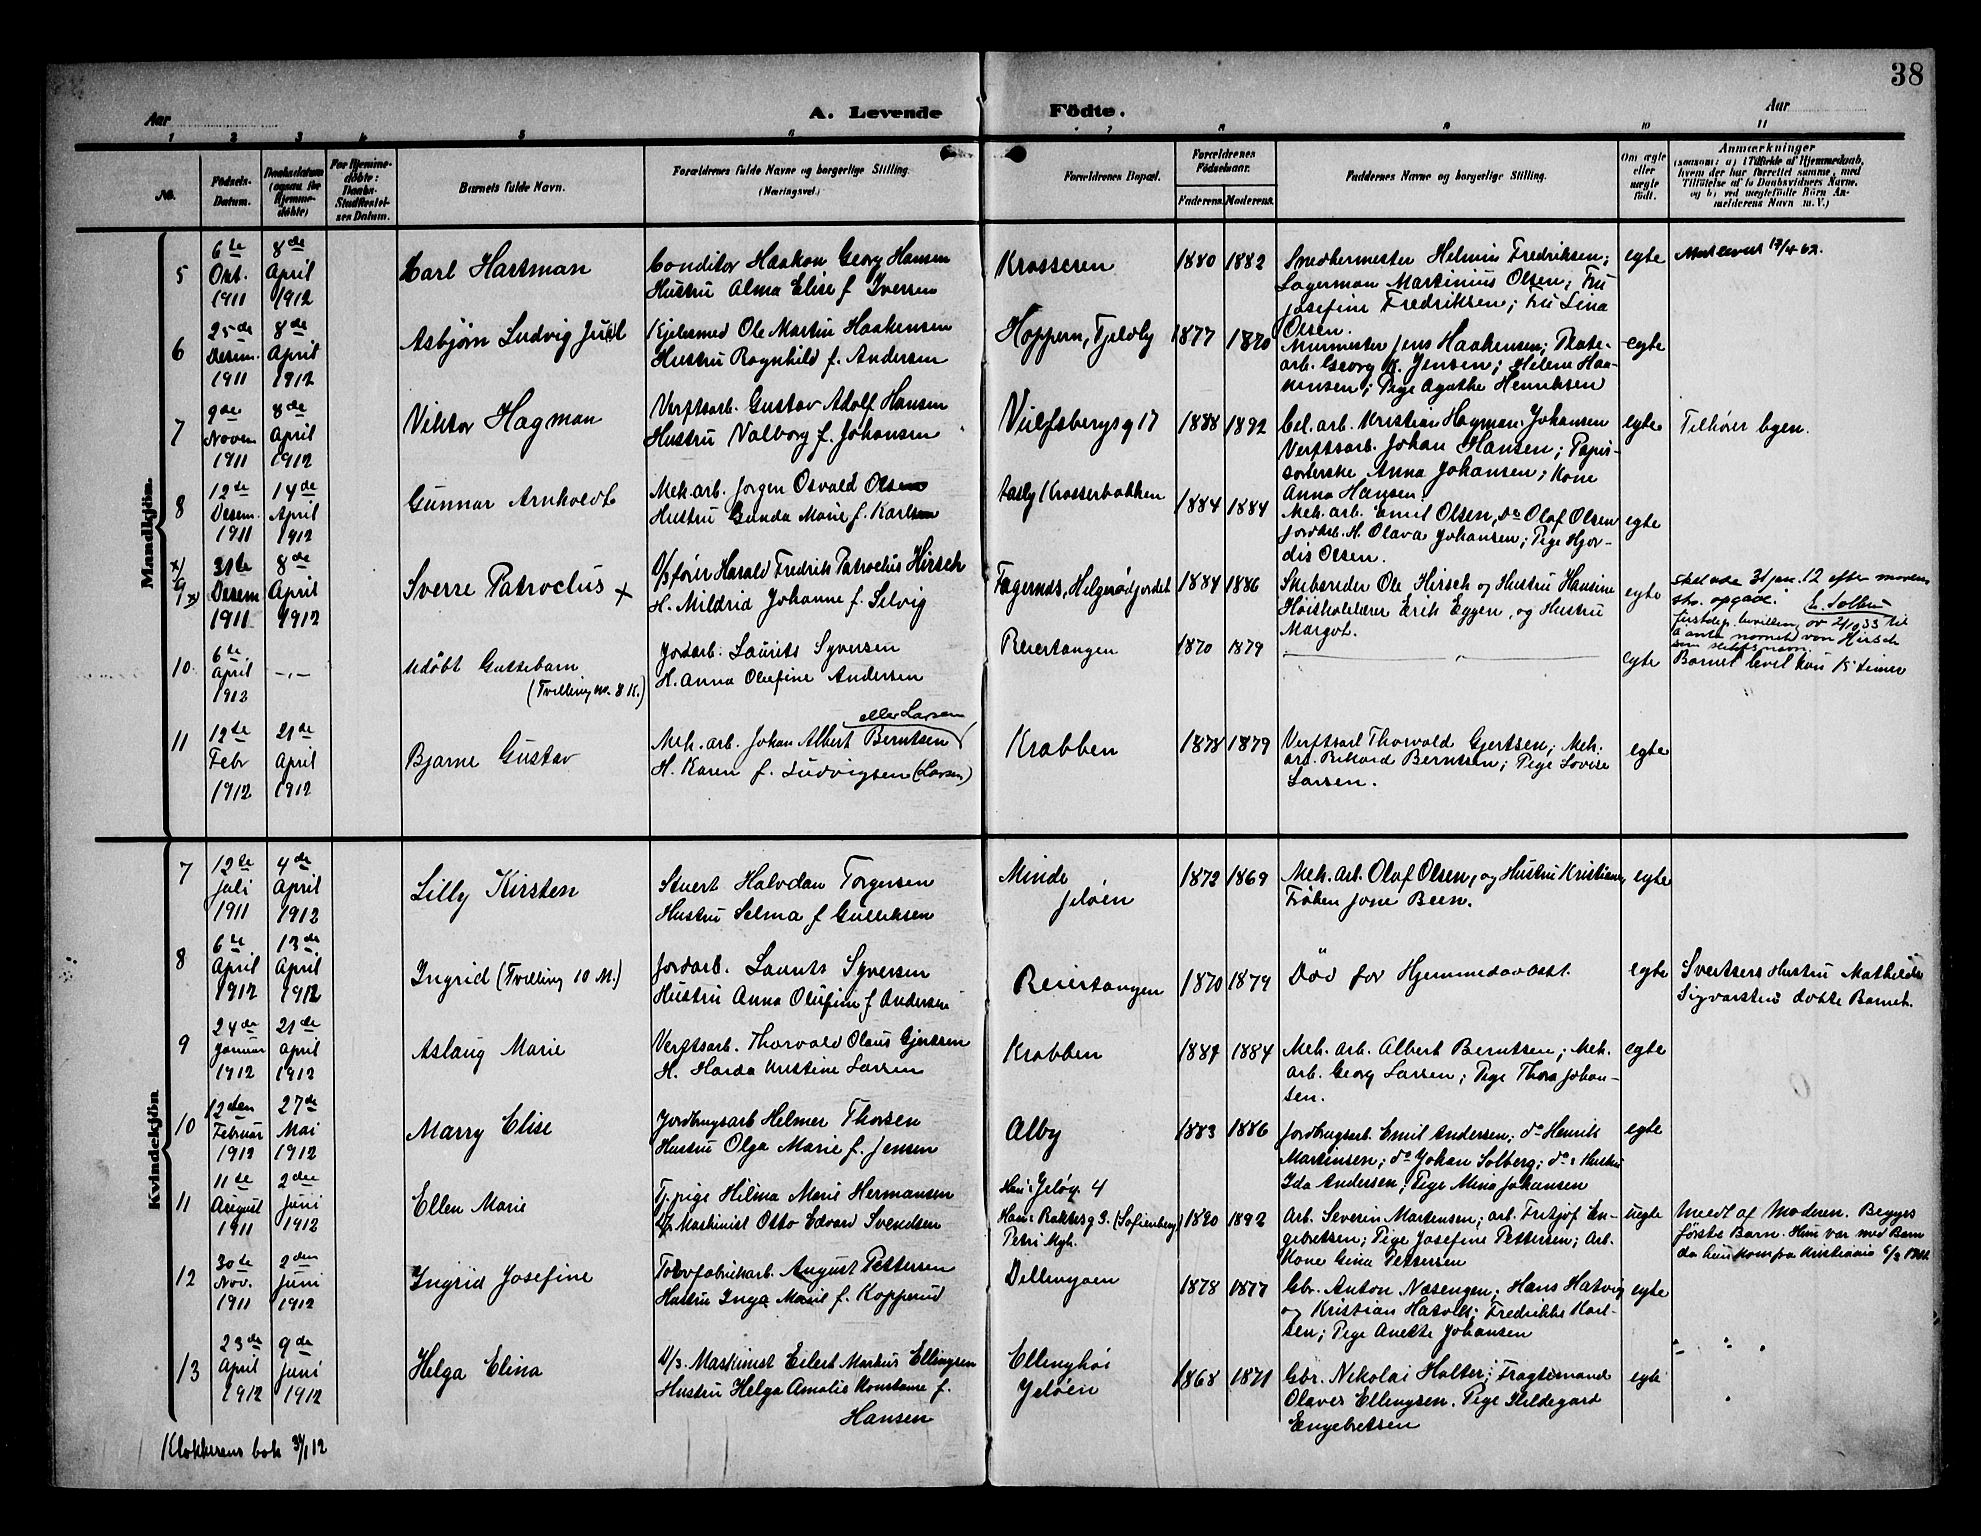 38
Aar
A. Levende Födte.
Aar
1 2 3 4 5 6 7 8 9 10 11
No.
Födsels-Datum.
Daabsdatum (ogsaa for Hjemme-döbte)
For Hjemme-döbte: Daabs-Stadfæstel-ses Datum.
Barnets fulde Navn.
Forældrenes fulde Navne og borgerlige Stilling. (Næringsvei.)
Forældrenes Bopæl.
Forældrenes Födselsaar.
Faderens. Moderens.
Faddernes Navne og borgerlige Stilling.
Om ægte eller uægte födt.
Anmærkninger
(saasom: a) i Tilfælde af Hjemmedaab, hvem der har forrettet samme, med Tilföielse af to Daabsvidners Navne, og b) ved uægtefödte Börn An-melderens Navn m. V.)
Mandkjön.
5
6te Okt. 1911
8de April 1912
Carl Hartman
Conditor Haakon Georg Hansen
Hustru Alma Elise f. Iversen
Krosseren
1880 1882
Smedhermester Helmin Fredriksen;
Lagerman Martinius Olsen; Fru
Josefine Fredriksen; Fru Lina
Olsen.
egte
6
25de Desem. 1911
8de April 1912
Asbjørn Ludvig Juul
Kjelesmed Ole Martin Haakensen
Hustru Ragnhild f. Andersen
Hoppern, Fjeldby
1877 1870
Murmester Jens Haakensen; Plate-
arb. Georg K. Jensen; Helene Haa-
kensen; Pige Agathe Henriksen
egte
7
9de Novem 1911
8de April 1912
Viktor Hagman
Verftsarb. Gustav Adolf Hansen
Hustru Valborg f. Johansen
Vulfsbergsg 17
1888 1892
Cel. arb. Kristian Hagman Johansen
Verftsarb. Johan Hansen; Papir-
sorterske Anna Johansen; Kone
Anna Hansen.
egte
Tilhører byen.
8
12te Desem. 1911
14de April 1912
Gunnar Arnholdt
Mek. arb. Jørgen Osvald Olsen
Hustru Gunda Marie f. Karlsen
Krosserbakken
1884 1884
Mek. arb. Emil Olsen, do Olaf Olsen
Jordarb. H. Olava Johansen; Pige Hjor-
dis Olsen.
egte
9
31te Desem 1911
8de April 1912
Sverre Patroclus x
S/s fører Harald Fredrik Patroclus Hirsch
H. Mildrid Johanne f. Selvig
Fagernes, Helgerødjordet
1884 1886
Skibsreder Ole Hirsch og Hustru Hansine
Høiskolelærer Erik Eggen, og Hustru
Margot.
egte
skal være 31 jan. 12 efter morens
skr. opgave. E. Solberg
Justdep. bevilling av 2/10 33 til
å anta navnet von Hirsch
som slektsnavn.
10.
6te April 1912
-,-
Udøbt Guttebarn
(Tvilling no. 8 K.)
Jordarb. Laurits Syversen
H. Anna Olufine Andersen
Reiertangen
1870 1879
egte
Barnet levet kun 15 timer
11
12te Febr 1912
21de April 1912
Bjarne Gustav
eller Larsen
Mek. arb. Johan Albert Berntsen
H. Karen f. Ludvigsen (Larsen)
Krabben
1878 1879
Verftsarb Thorvald Gjertsen; Mek.
arb. Rikard Berntsen; Pige Lovise
Larsen.
egte
Kvindekjön
7
12te Juli 1911
4de April 1912
Lilly Kirsten
Stuert Halvdan Torgersen
Hustru Selma f Gulliksen
Minde
Jeløen
1872 1869
Mek. arb. Olaf Olsen, og Hustru Kristiane,
Frøken Jone Been.
egte
8
6te April 1912
13de April 1912
Ingrid (Tvilling 10 M.)
Jordarb. Laurits Syversen
Hustru Anna Olufine f Andersen
Reiertangen
1870 1879
Død før Hjemmedaabst.
egte
Svertsers Hustru Mathilde
Sigvartsen døbte Barnet.
9
24de Januar 1912
21de April 1912
Aslaug Marie
Verftsarb. Thorvald Olaus Gjertsen
H. Harda Kristine Larsen
Krabben
1884
Mek. arb. Albert Berntsen; Mek.
arb. Georg Larsen; Pige Thora Johan-
sen.
egte
10
12den Februar 1912
27de Mai 1912
Marry Elise
Jordbrugsarb Helmer Thorsen
Hustru Olga Marie f. Jensen
Alby
1883 1886
Jordbrugsarb. Emil Andersen; do Henrik
Martinsen; do Johan Solberg; dos Hustru
Ida Andersen; Pige Mina Johansen
egte
11
11te August 1911
2den Juni 1912
Ellen Marie
Tj. pige Hilma Marie Hermansen
Maskinist Otto Edvard Svendsen
Hun: Jeløy. 4
Han: Rakkesg 3. (Sofienberg)
Petri Mgh.
1890 1892
Arb. Severin Martinsen; arb. Fritjof En-
gebretsen; Pige Josefine Pettersen; Arb.
Kone Gina Pettersen
uegte
Meldt af Moderen. Begges
første Barn. Hun var med Barn
da hun kom fra Kristiania
12
30te Nov. 1911
2den Juni 1912
Ingrid Josefine
Torvfabrikarb. August Pettersen
Hustru Inga Marie f. Kopperud
Dillingøen
1878 1877
Gbr. Anton Næsengen; Hans Hatvig
og Kristian Hatvik; Fredrikke Karl-
sen; Pige Anette Johansen
egte
13
23de April 1912
9de Juni 1912
Helga Elina
D/s. Maskinist Eilert Markus Ellingsen
Hustru Helga Amalie Konstanse f.
Hansen
Ellinghøi
Jeløen
1868 1871
Gbr. Nikolai Holter; Fragtemand
Olaves Ellingsen. Pige Hildegard
Engebretsen
egte
Klokkerens bok